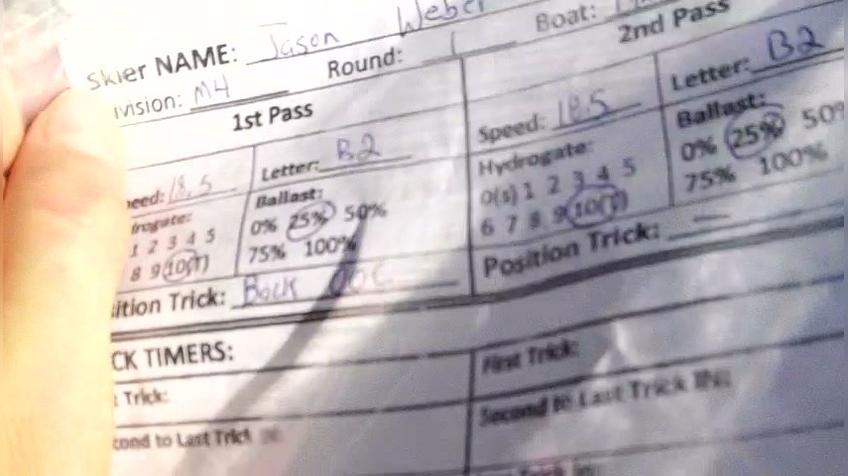 Skier NAME: Jason Weber
ivision: M4 Round: 1 Boat:
1st Pass
eed: 18.5 Letter: B2
rogate: Ballast:
1 2 3 4 5 0% 25% 50%
8 9 10(T) 75% 100%
ition Trick: Back
2nd Pass
Speed: 18.5 Letter: B2
Hydrogate: Ballast:
0(s) 1 2 3 4 5 0% 25% 50%
6 7 8 9 10(T) 75% 100%
Position Trick: —
CK TIMERS:
Trick: First Trick:
cond to Last Trick Second to Last Trick